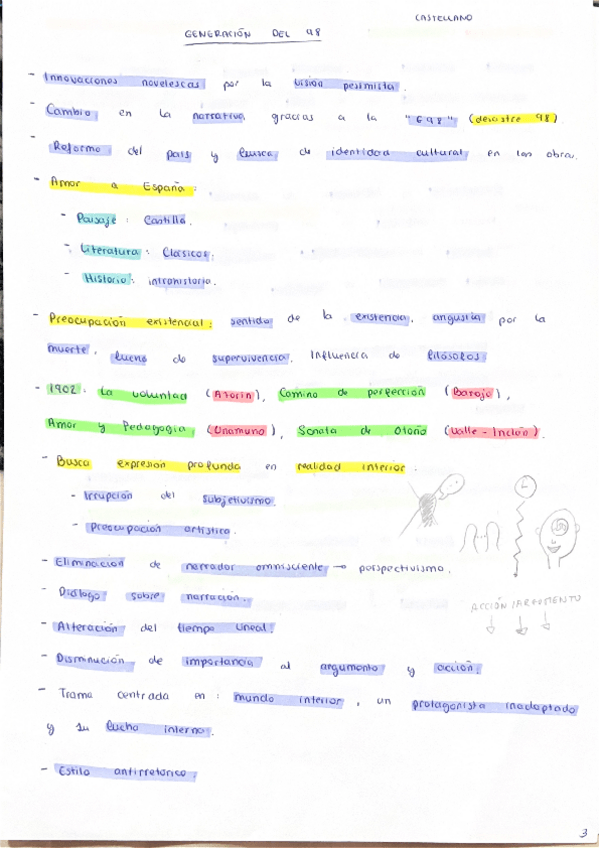 CASTELLANO
GENERACIÓN DEL 98
- Innovaciones novelescas por la visión pesimista.
- Cambio en la narrativa gracias a la "G98" (desastre 98).
- Reforma del país y busca de identidad cultural en las obra.
- Amor a España:
- Paisaje: Castilla.
- Literatura: Clásicos.
- Historia: intrahistoria.
- Preocupación existencial: sentido de la existencia, angustia por la
muerte, lucha de supervivencia. Influencia de filósofos
- 1902: La voluntad (Azorín), Camino de perfección (Baroja),
Amor y Pedagogía (Unamuno), Sonata de Otoño (Valle-Inclán).
- Busca expresión profunda en realidad interior:
- Irrupción del subjetivismo.
- Preocupación artística.
- Eliminación de narrador omnisciente → perspectivismo.
- Diálogo sobre narración.
- Alteración del tiempo lineal.
- Disminución de importancia al argumento y acción.
ACCIÓN/ARGUMENTO
- Trama centrada en: mundo interior, un protagonista inadaptado
y su lucha interna.
- Estilo antirretórico.
3